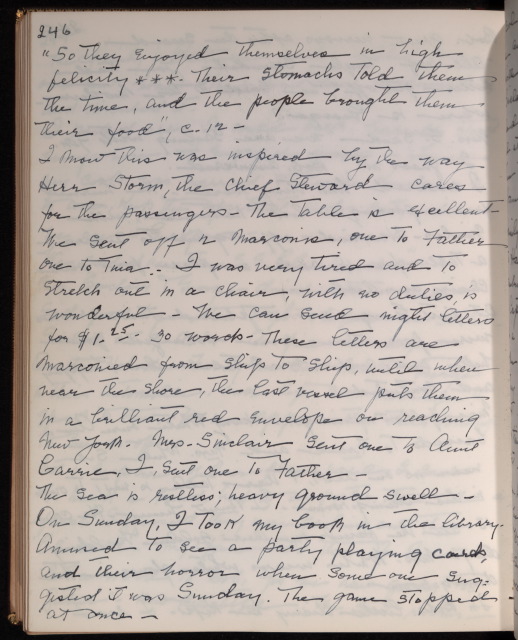 246
"So they enjoyed themselves in high
felicity *** Their stomachs told them
the time, and the people brought them
their food", c. 12 -
I know this was inspired by the way
Herr Storm, the Chief Steward cares
for the passengers - The table is excellent -
We sent off 2 Marconis, one to Father
one to Tina - I was very tired and to
stretch out in a chair, with no duties, is
wonderful - We can send night letters
for $1.25 - 30 words - These letters are
Marconied from ship to ship, until when
near the shore, the last vessel puts them
in a brilliant red envelope on reaching
New York. Mrs. Sinclair sent one to Aunt
Carrie, I, sent one to Father -
The sea is restless; heavy ground swell -
On Sunday, I took my book in the library.
Amused to see a party playing cards,
and their horror when some one sug-
gested it was Sunday. The game stopped -
at once -